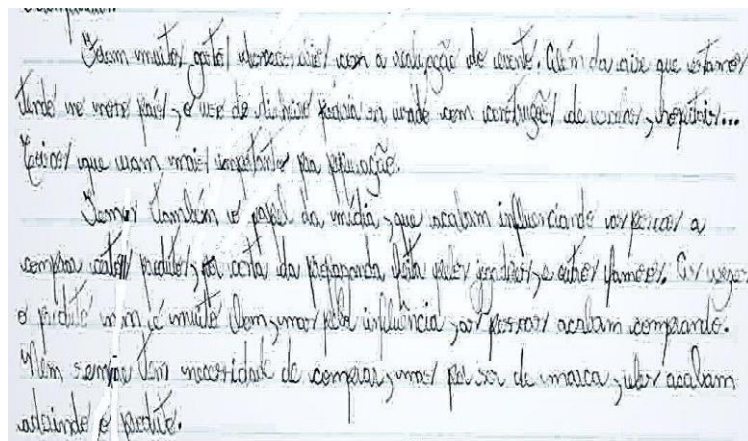 Foram muitos gastos desnecessários com a realização do evento. Além da crise que estamos
tendo no nosso país, o uso do dinheiro poderia ser usado com construções de escolas, hospitais...
Coisas que eram mais importantes pra população.
Temos também o papel da mídia, que acabam influenciando as pessoas a
comprar certos produtos, por conta da propaganda feita pelos jogadores, e outros famosos. As vezes
o produto nem é muito bom, mas pela influência, as pessoas acabam comprando.
Nem sempre tem necessidade de comprar, mas por ser de marca, eles acabam
aderindo o produto.